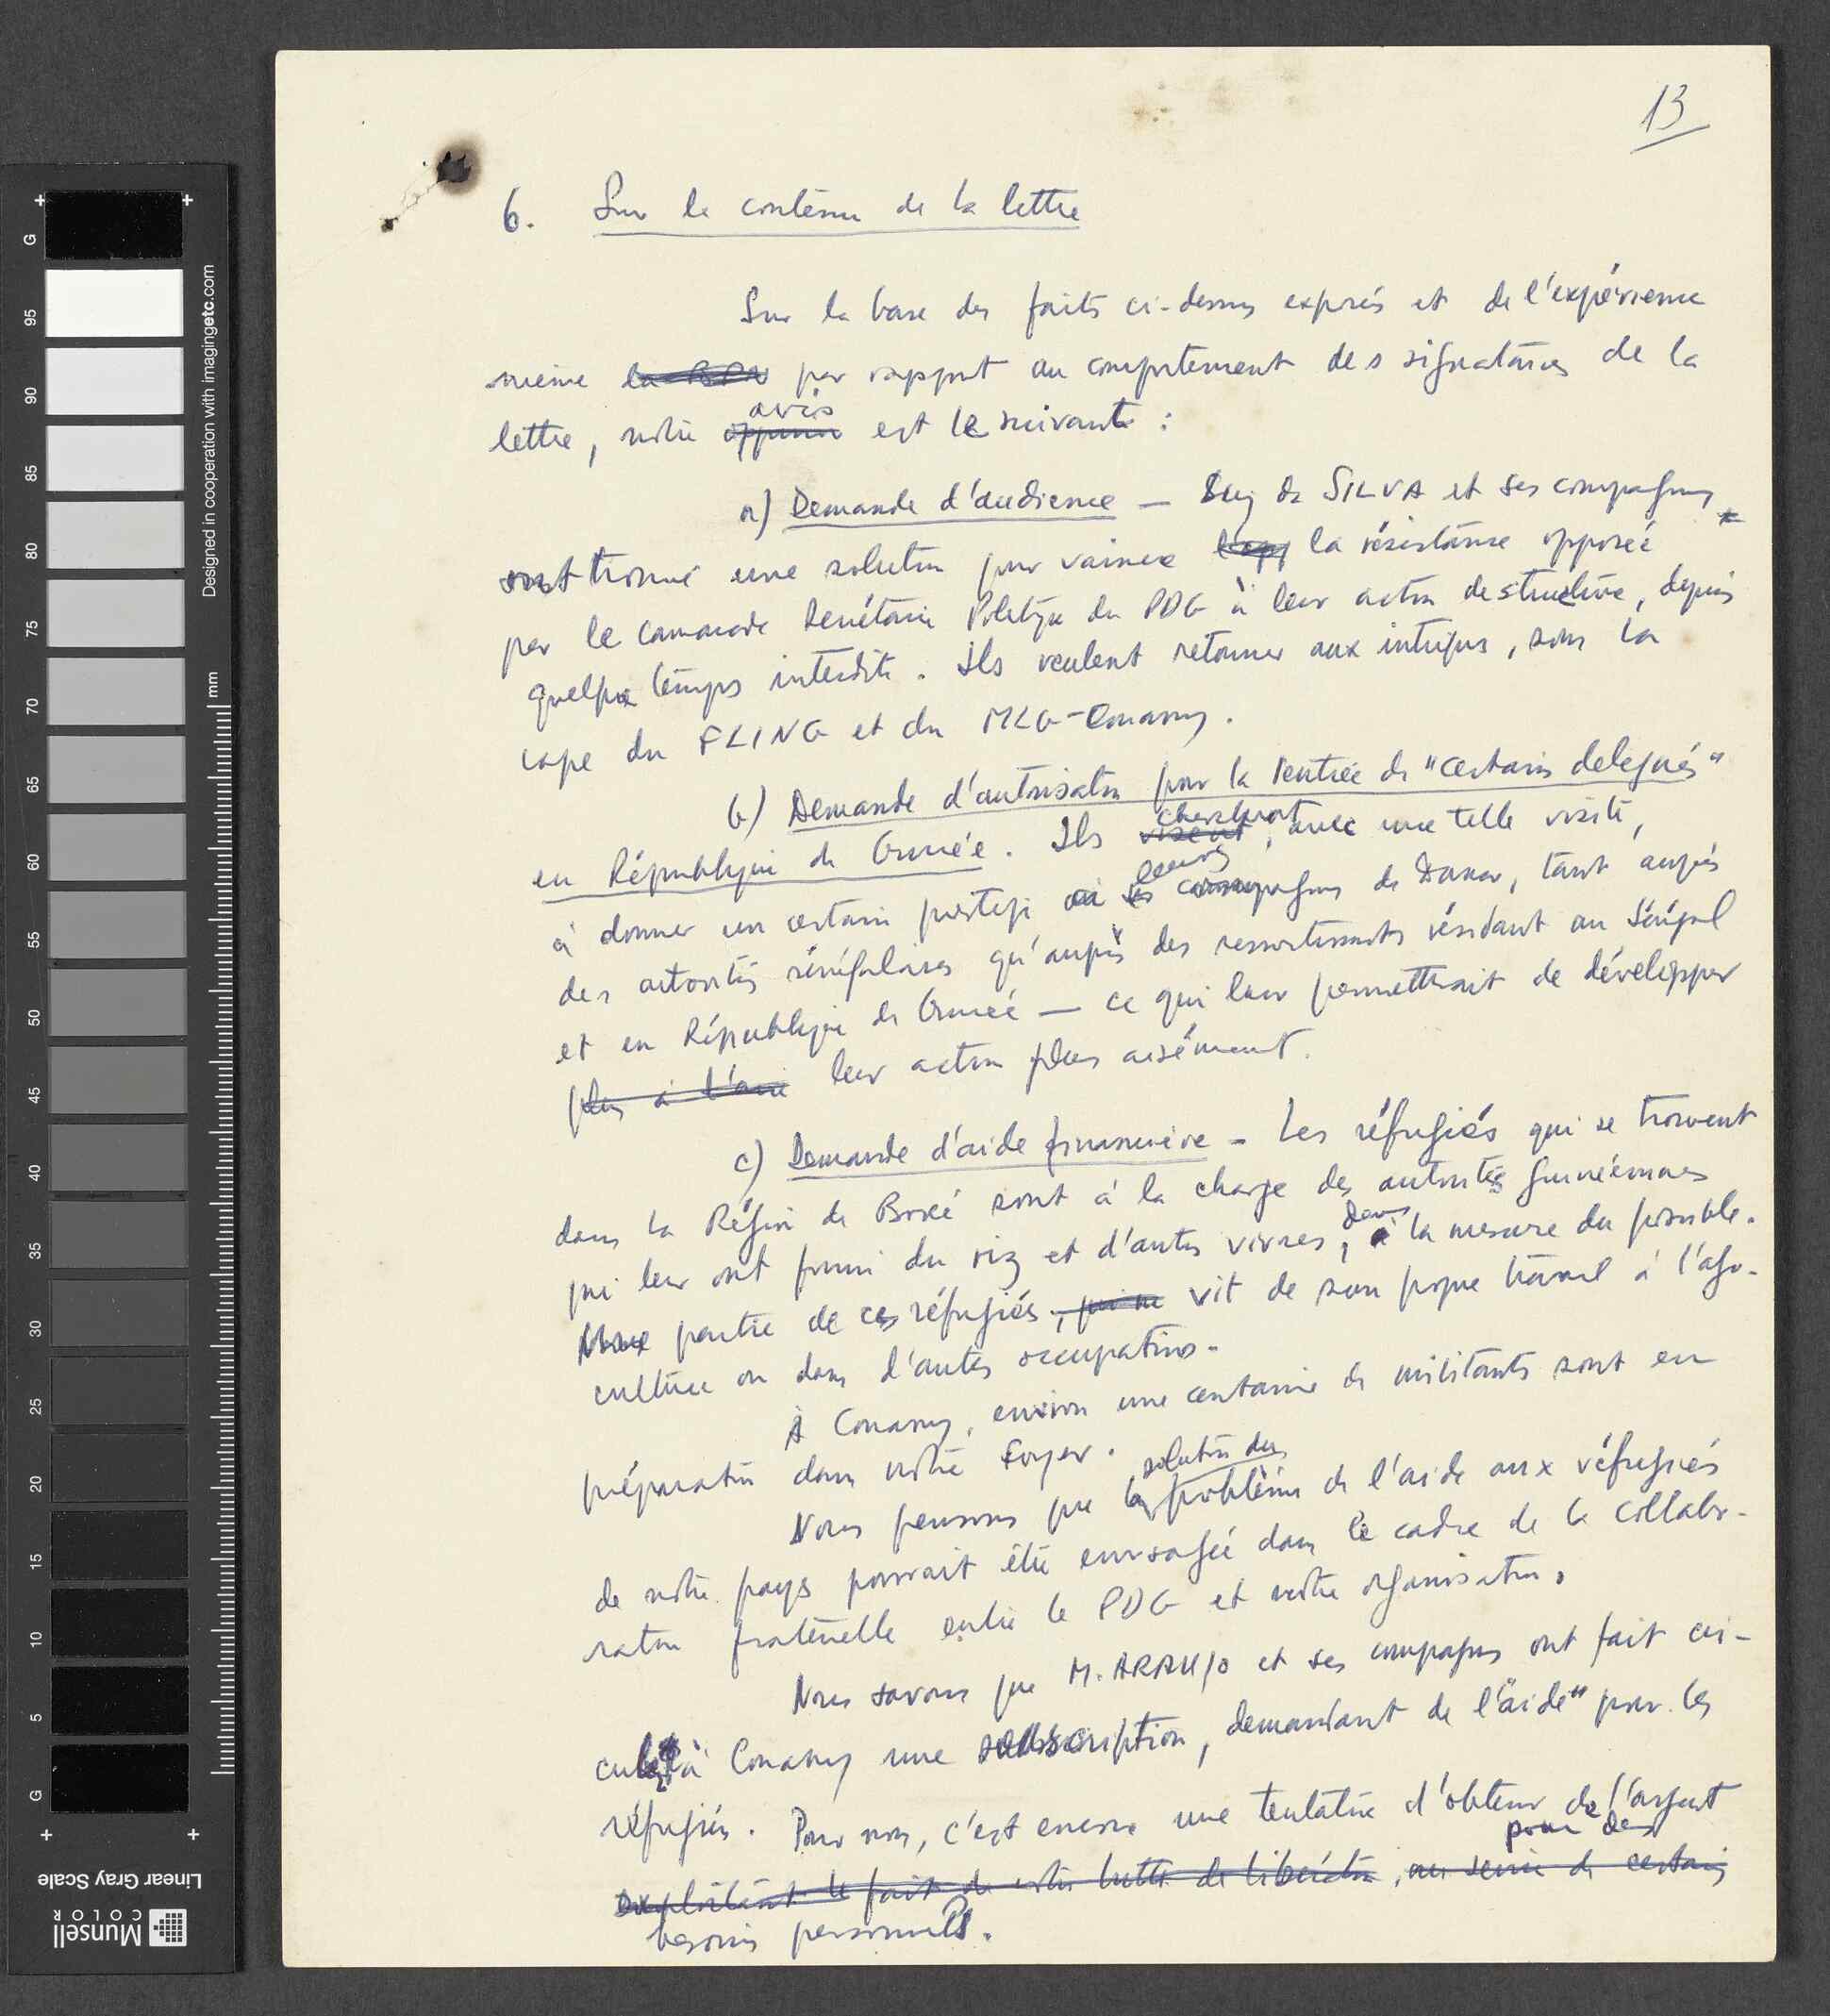 13
6. Sur le contenu de la lettre
Sur la base des faits ci-dessus exposés et de l'expérience
même par rapport au comportement des signataires de la
lettre, notre avis est le suivant :
a) Demande d'audience — de SILVA et ses compagnons
ont trouvé une solution pour vaincre la résistance opposée
par le camarade Secrétaire Politique du PDG à leur action destructive, depuis
quelque temps interdite. Ils veulent retourner aux intrigues, sous la
cape du FLING et du MLG-Conakry.
b) Demande d'autorisation pour la rentrée de "certains delegués"
en République de Guinée. Ils cherchent, avec une telle visite,
à donner un certain prestige à leurs compagnons de Dakar, tant auprès
des autorités sénégalaises qu'auprès des ressortissants résidant au Sénégal
et en République de Guinée — ce qui leur permettrait de développer
plus à l'aise leur action plus aisément.
c) Demande d'aide financière - Les réfugiés qui se trouvent
dans la Région de Boké sont à la charge des autorités guinéennes
qui leur ont fourni du riz et d'autres vivres, dans la mesure du possible.
Une partie de ces réfugiés vit de son propre travail à l'agri-
culture ou dans d'autres occupations.
À Conakry, environ une centaine de militants sont en
préparation dans notre Foyer.
Nous pensons que la solution du problème de l'aide aux réfugiés
de notre pays pourrait être envisagée dans le cadre de la collabo-
ration fraternelle entre le PDG et notre organisation.
Nous savons que M. ARAUJO et ses compagnons ont fait cir-
culer à Conakry une subscription, demandant de l'"aide" pour les
réfugiés. Pour nous, c'est encore une tentative d'obtenir de l'argent
pour des
exploitant le fait de notre lutte de libération, au service de certains
besoins personnels.
Designed in cooperation with imagingetc.com
mm
G
95
90
85
80
75
70
65
60
55
50
45
40
35
30
25
20
15
10
5
G
Linear Gray Scale
Munsell
COLOR